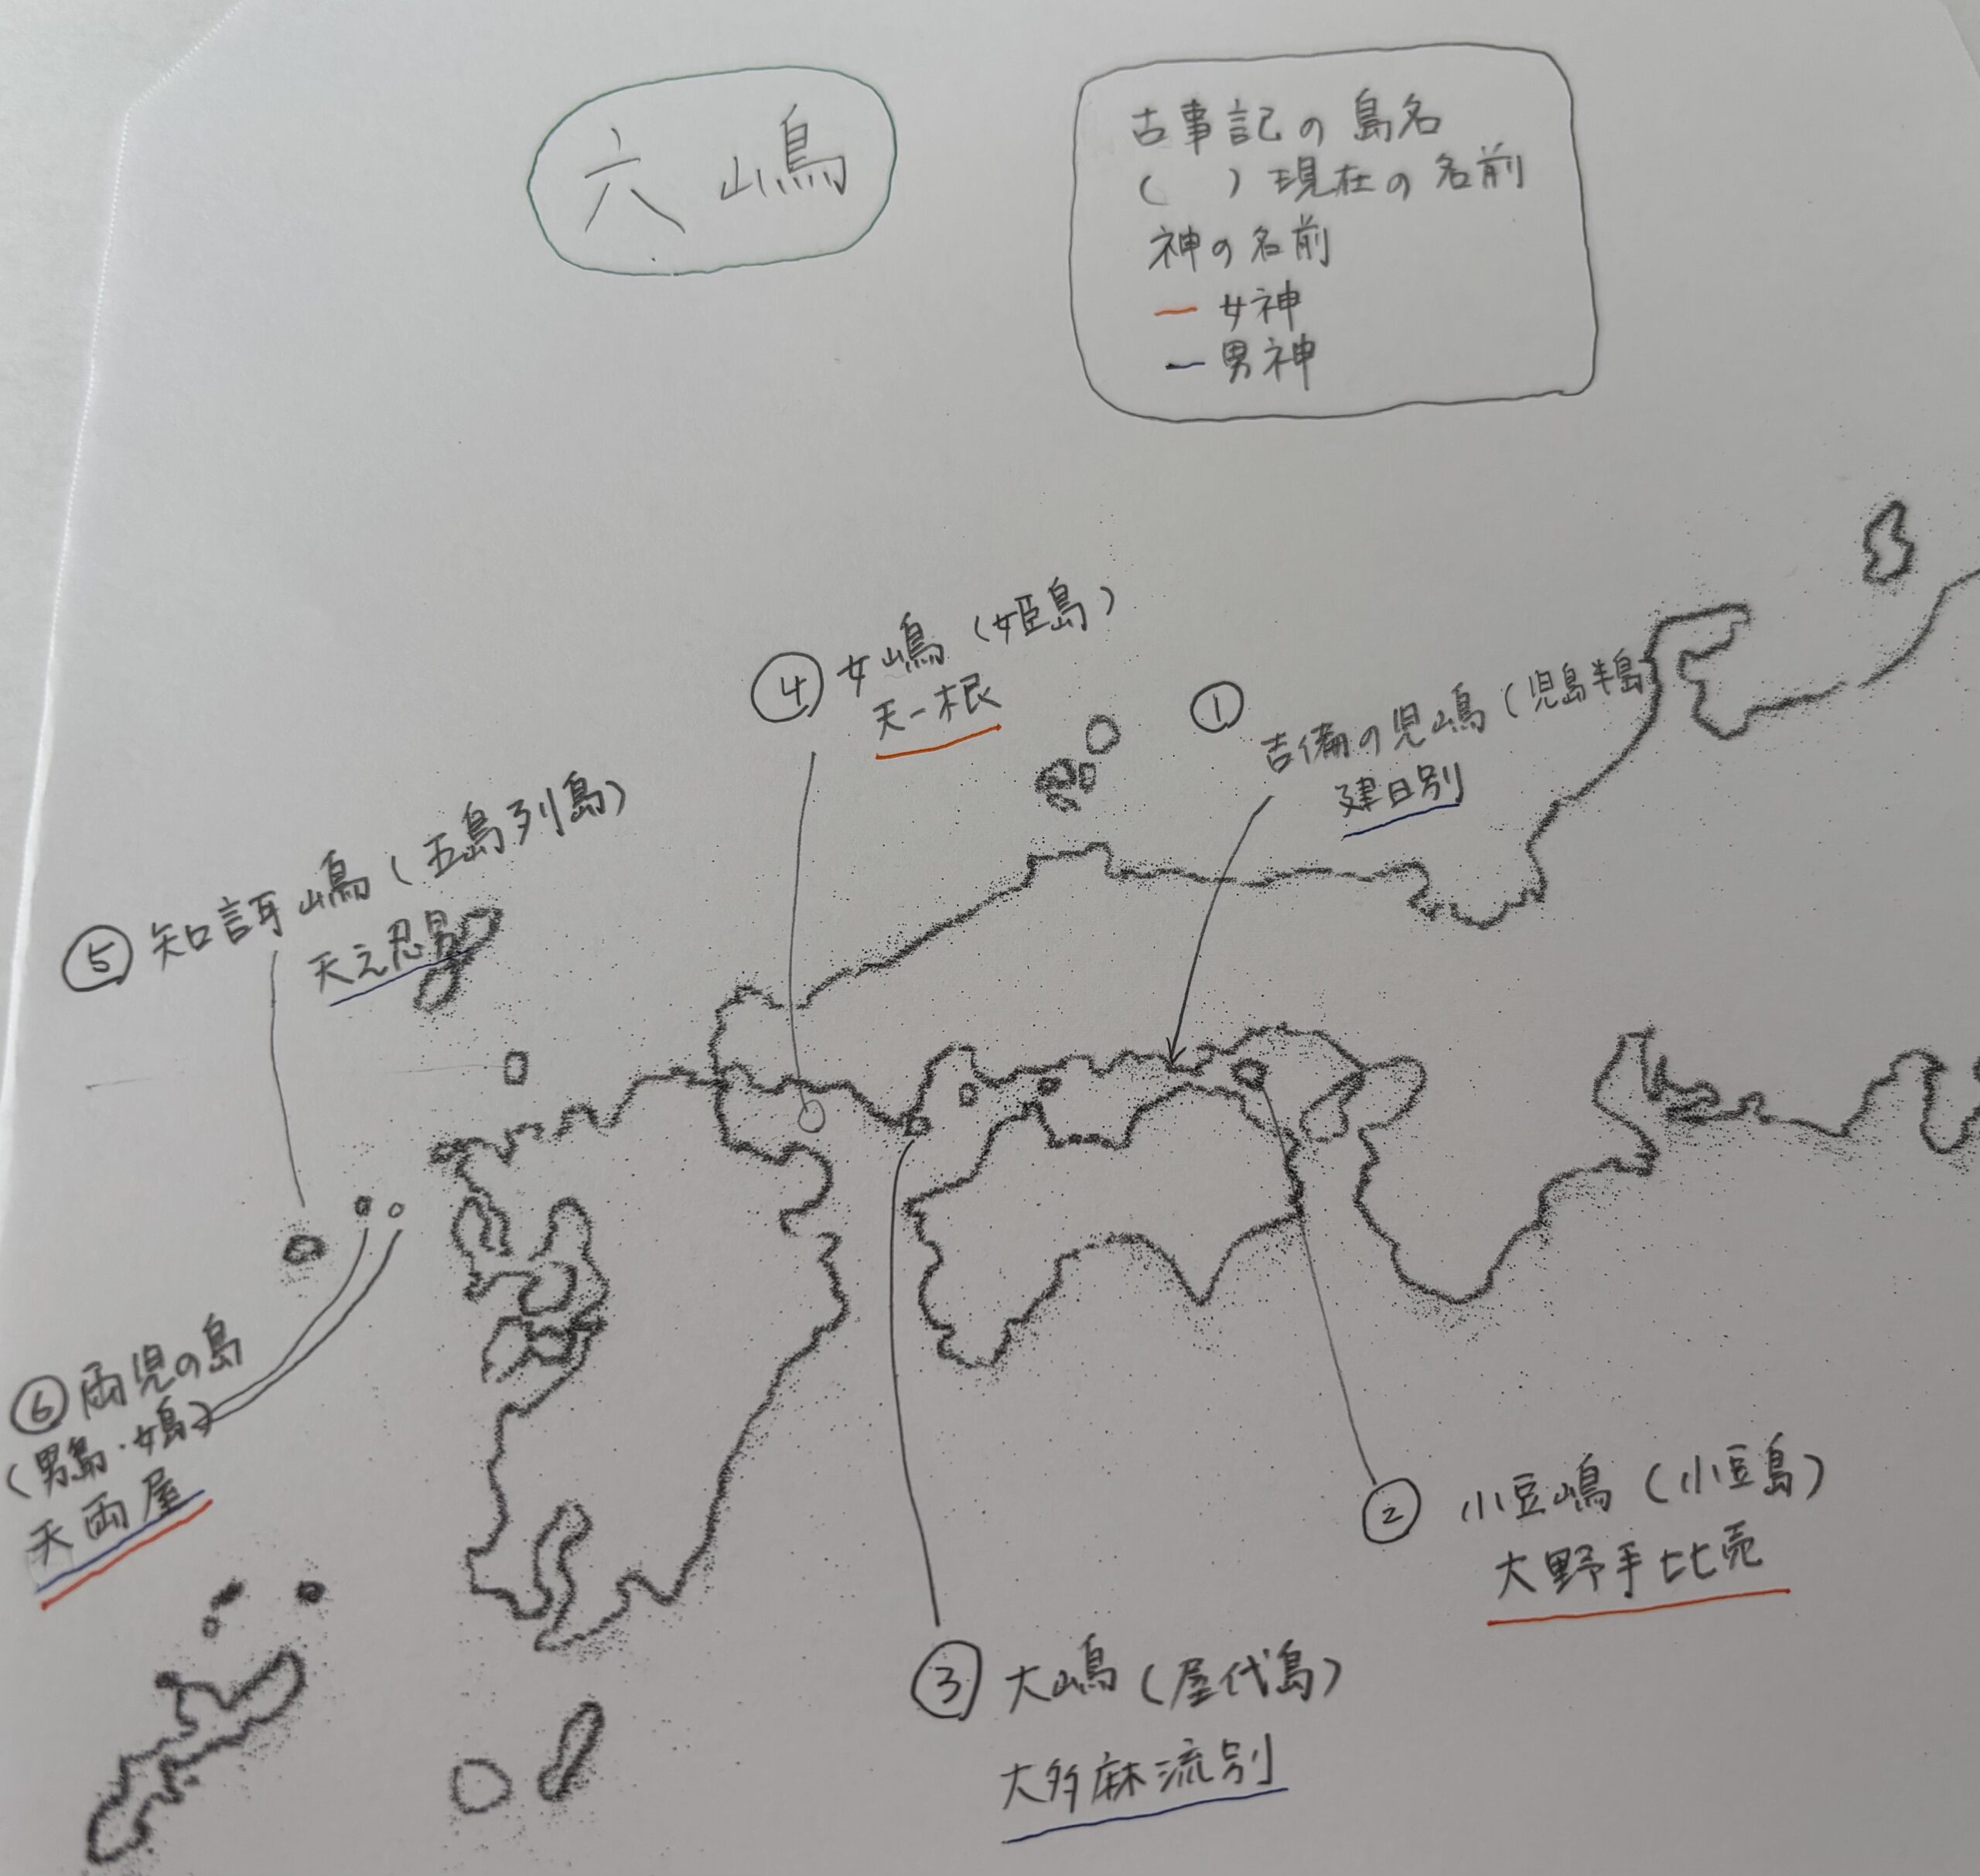 六嶋
古事記の島名
(　)現在の名前
神の名前
女神
男神
④ 女嶋(姫島)
天一根
① 吉備の児嶋(児島半島
建日別
⑤ 知訶嶋(五島列島)
天之忍男
⑥ 両児の島
(男島・女島)
天両屋
② 小豆嶋(小豆島)
大野手比売
③ 大嶋(屋代島)
大多麻流別